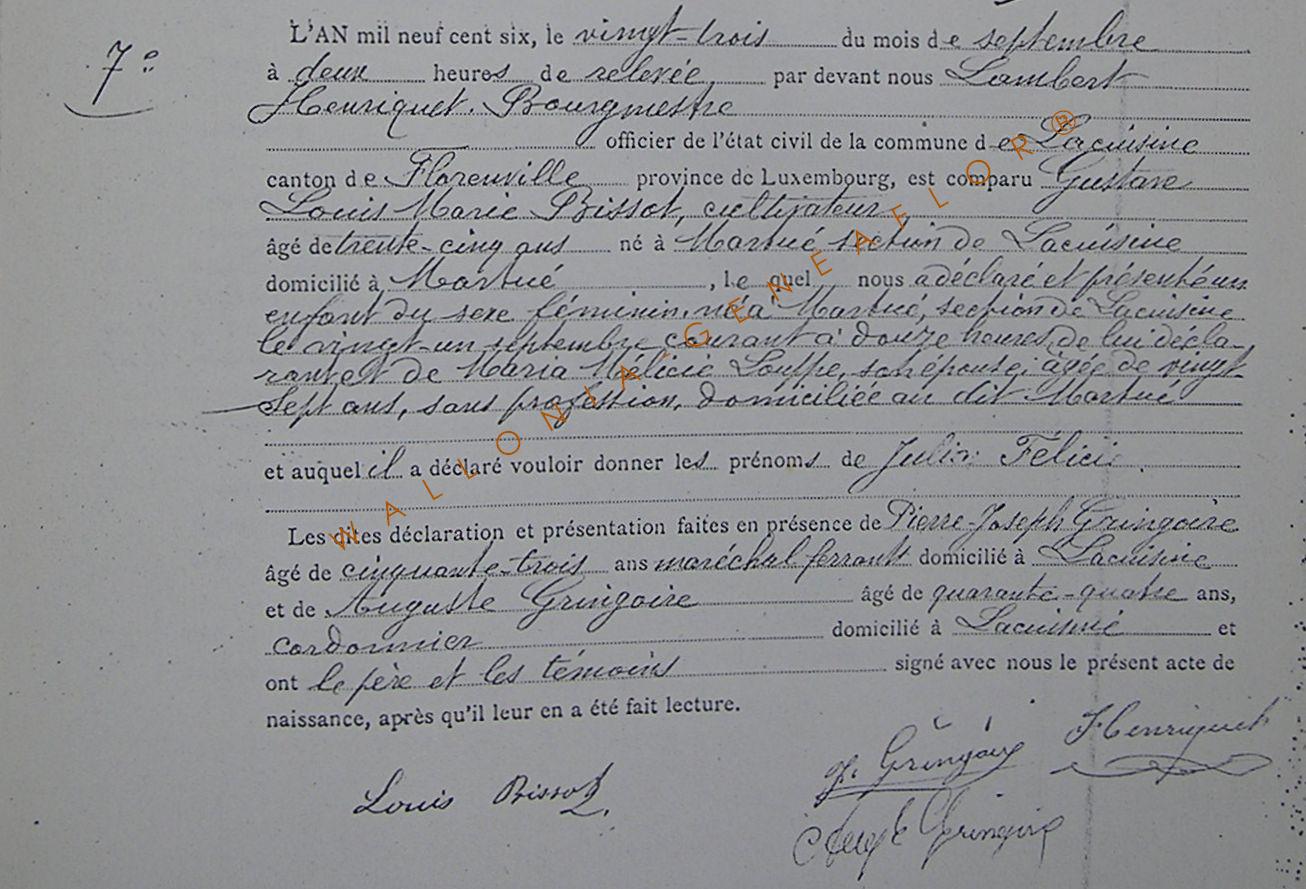 7º
L'AN mil neuf cent six, le vingt-trois du mois de septembre
à deux heures de relevée, par devant nous Lambert
Henriquet. Bourgmestre
officier de l'état civil de la commune de Lacuisine
canton de Florenville province de Luxembourg, est comparu Gustave
Louis Marie Bissot, cultivateur,
âgé de trente-cinq ans né à Martué section de Lacuisine
domicilié à Martué, lequel nous a déclaré et présenté un
enfant du sexe féminin, né à Martué, section de Lacuisine
le vingt-un septembre courant à douze heures, de lui décla-
rant et de Maria Mélicie Louppe, son épouse, âgée de vingt
sept ans, sans profession, domiciliée au dit Martué
et auquel il a déclaré vouloir donner les prénoms de Félici
Les dites déclaration et présentation faites en présence de Pierre-Joseph Gringoire
âgé de cinquante-trois ans maréchal ferrant domicilié à Lacuisine
et de Auguste Gringoire âgé de quarante-quatre ans,
cordonnier domicilié à Lacuisine et
ont le père et les témoins signé avec nous le présent acte de
naissance, après qu'il leur en a été fait lecture.
Gringoire Henriquet
Louis Bissot
Gringoire
WALLONIA GENEAFLOR®